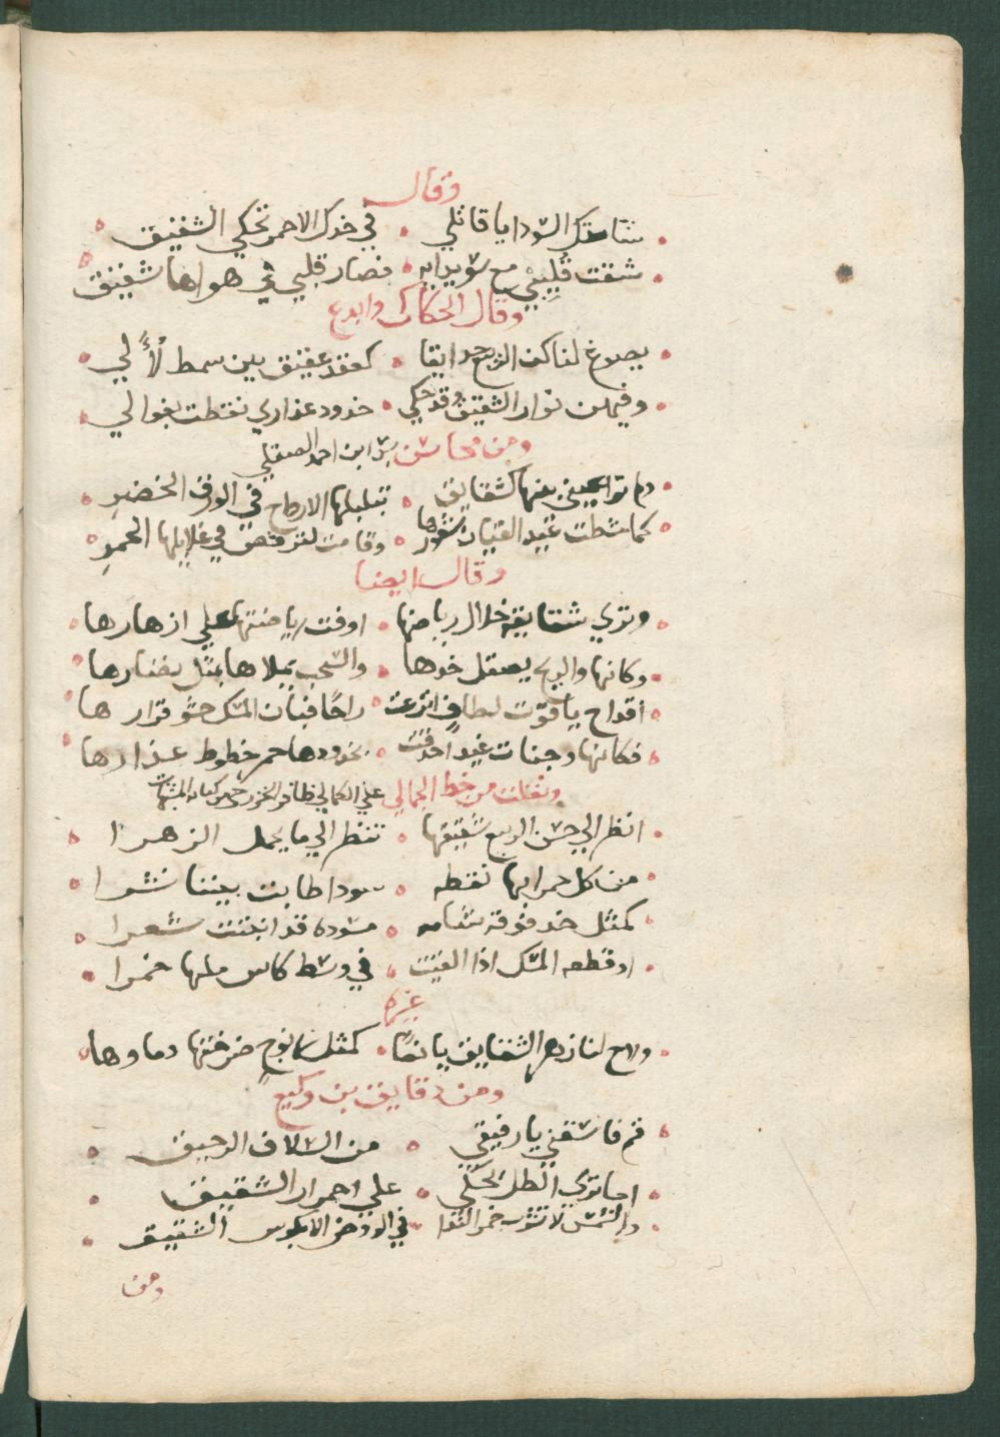 وقال
شامتك السودا يا قاتلي • في خدك الاحمر تحكي الشقيق
شقت قليبي مع سويدايه • فصار قلبي في هواها شقيق
وقال الحكاك وابدع
يصوغ لنا كف الربيع حدايقا • كعقد عقيق بين سمط لألي
وفيهن نوار الشقيق وقد حكي • خدود عذاري نقطت بغوالي
ومن محاسن بن احمد الصقلي
كشقايق • تبلبلها الارواح في الورق الخضر
كما مشطت غيد القيان شعورها • وقامت لترقص في غلايلها الحمر
وقال ايضا
وتري شقايقه خلال رياضها • اوفت رياضتها علي ازهارها
وكانها والريح يصقل خدها • والسحب يملاها بمثل بقطارها
أقداح ياقوت لطاف اترعت • راحا فبات المسك حشو قرارها
فكانها وجنات غيد احدقت • بخدودها حمر خطوط عذارها
ونقلت من خط الجمالي علي الكمالي
انظر الي حسن الربيع شقيقها • تنظر الي ما يحمل الزهرا
من كل حمرا بها نقطه • سودا طابت بيننا نشرا
كمثل خد فوقه شامه • مسوده قد انبتت شعرا
او قطعه المسك اذا القيت • في وسط كاس ملها خمرا
غيره
ولاح لنا زهر الشقايق يانعا • كمثل ضرجتها دماوها
ومن دقايق بن وكيع
قم فاسقني يا رفيقي • من السلاف الرحيق
اما تري الطل الحلي • علي احمرار الشقيق
لا تشرب خمر • في الروض الا بكوس الشقيق
ومن